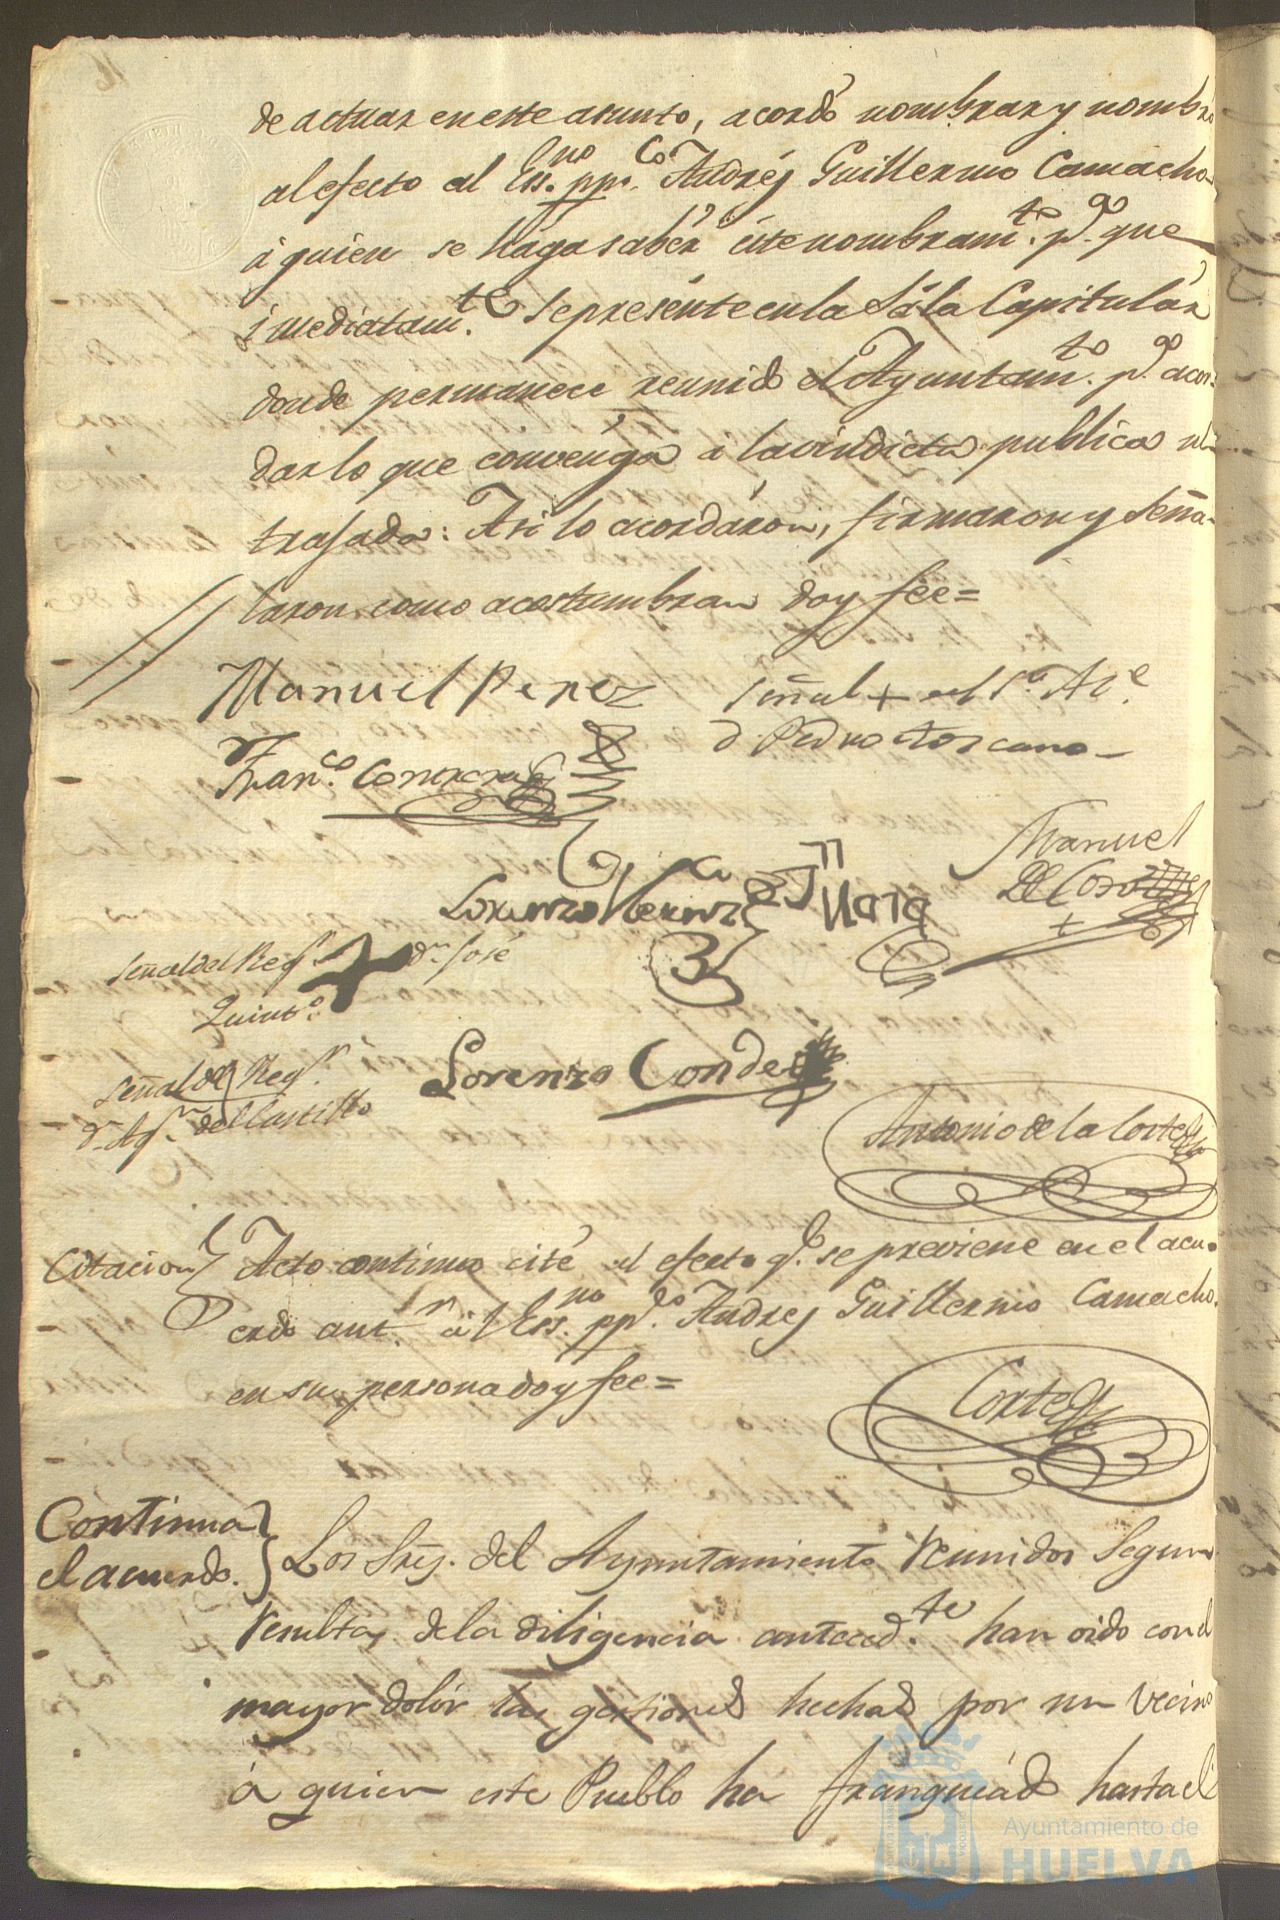 de actuar en este asunto, acordó nombrar y nombró
al efecto al Ess.no pp.co Andrés Guillermo Camacho
á quien se haga saber éste nombram.to p.a que
inmediatam.te se presénte en la Sála Capitulár
donde permanece reunido el Ayuntam.to p.a acor-
dar lo que convénga á la vindicta publica ul-
trajada: Asi lo acordáron, firmaron y Seña-
laron como acostumbran doy fee=
Manuel Perez
Señal + del S.or Al.e
d. Pedro Toscano
Fran.co Contreras
Manuel
De Cordero
Lorenzo
Señal del Reg.r + d.n José
Quint.o
Lorenzo Conde
Señal del Reg.r
d.n Ag.n del Castillo
Antonio de la Corte
Citacion
Acto continuo cité al efecto q.e se previene en el acu-
erdo ant.r á l Ess.no pp.co Andrés Guillermo Camacho
en su persona doy fee=
Corte
Continua
el acuerdo.
Los Sres. del Ayuntamiento reunidos Segun
resulta de la diligencia anteced.te han oido con el
mayor dolór las gestiones hechas por un Vecino
á quien este Pueblo ha franqueádo hasta el
Ayuntamiento de
HUELVA